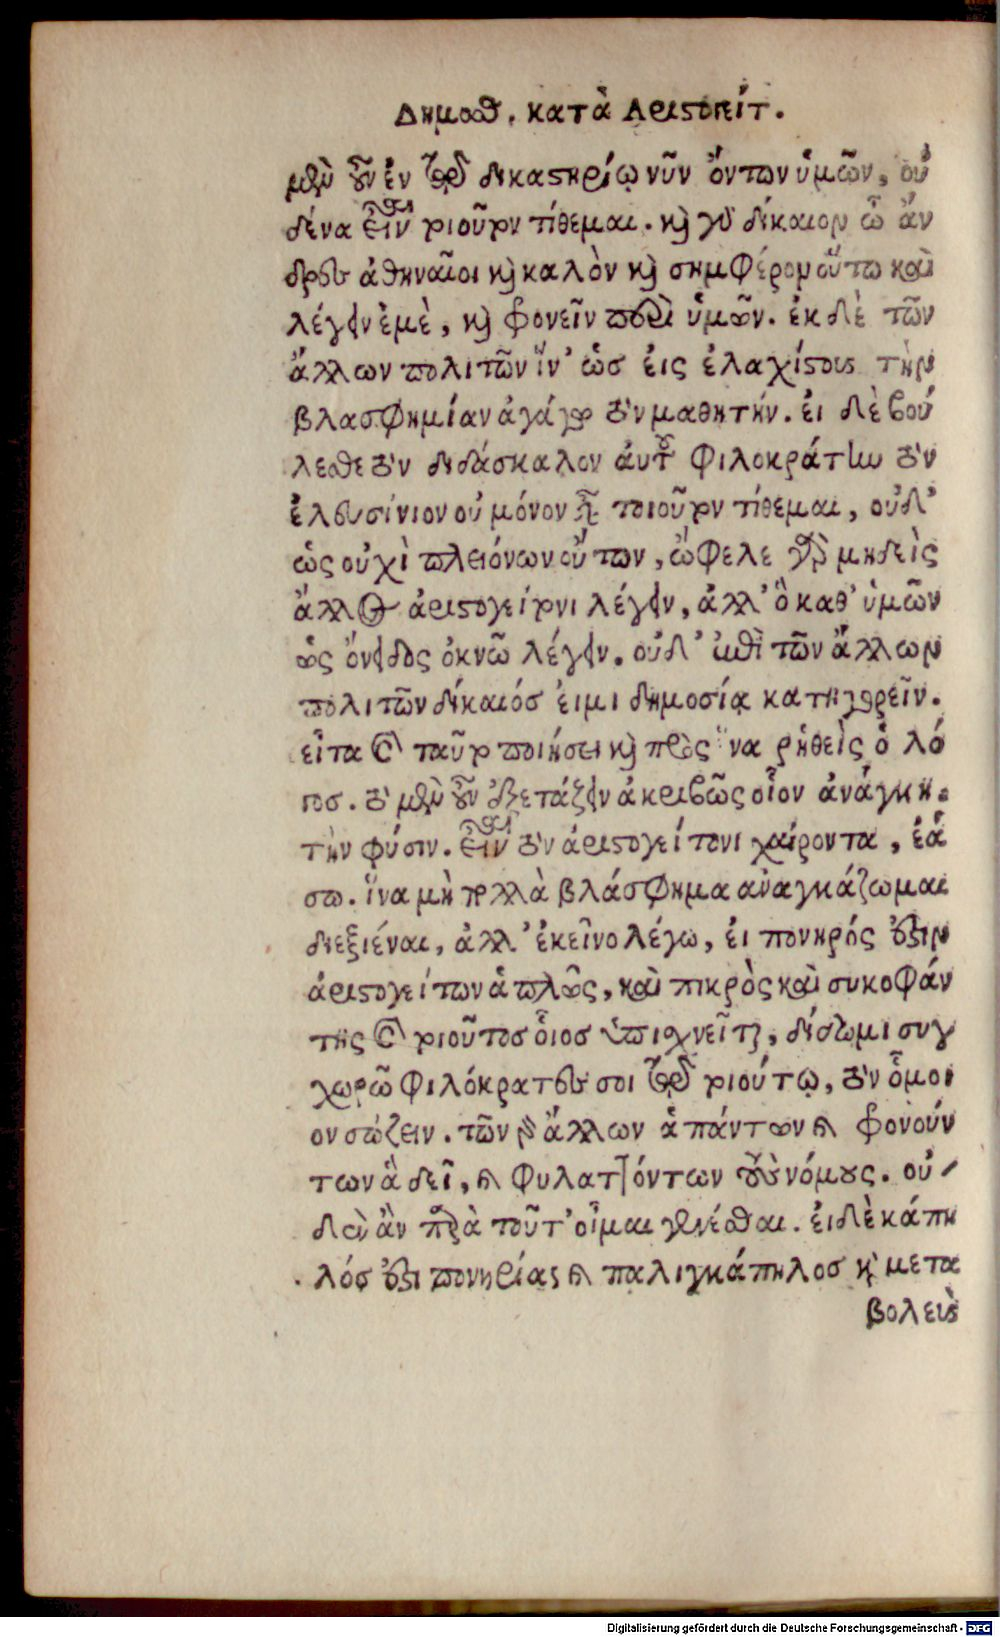 Δημοσθ. κατὰ Αριστογείτ.
μὲν οὖν ἐν τῷ δικαστηρίῳ νῦν ὄντων ὑμῶν, οὐ
δένα εἶναι τοιοῦτον τίθεμαι. καὶ γὰρ δίκαιον ὦ ἄν
δρες ἀθηναῖοι καὶ καλὸν καὶ σημφέρον οὕτω καὶ
λέγειν ἐμὲ, καὶ φρονεῖν περὶ ὑμῶν. ἐκ δὲ τῶν
ἄλλων πολιτῶν ἵν' ὡσ εἰς ἐλαχίστους τὴν
βλασφημίαν ἀγάγω τὸν μαθητήν. εἰ δὲ βού
λεσθε τὸν διδάσκαλον αὐτοῦ φιλοκράτην τὸν
ἐλευσίνιον οὐ μόνον τοιοῦτον τίθεμαι, οὐδ'
ὡς οὐχὶ πλειόνων οὕτων, ὤφελε γὰρ μηδεὶς
ἄλλος ἀριστογείτονι λέγειν, ἀλλ' ὃ καθ' ὑμῶν
ὡς ὄνειδος ὀκνῶ λέγειν. οὐδ' ἐπὶ τῶν ἄλλων
πολιτῶν δίκαιός εἰμι δημοσίᾳ κατηγορεῖν.
εἶτα καὶ ταὐτὸ ποιήσει καὶ πρὸς ἵνα ῥηθεὶς ὁ λό
γοσ. τὸ μὲν οὖν ἐξετάζειν ἀκριβῶς οἷον ἀνάγκη.
τὴν φύσιν. εἶναι τὸν ἀριστογείτονι χαίροντα, ἐά
σω. ἵνα μὴ πολλὰ βλάσφημα αναγκάζωμαι
διεξιέναι, ἀλλ' ἐκεῖνο λέγω, εἰ πονηρός ἐστιν
ἀριστογείτων ἁπλῶς, καὶ πικρὸς καὶ συκοφάν
της καὶ τοιοῦτοσ οἷοσ ὑπισχνεῖται, δίδωμι συγ
χωρῶ φιλόκρατες σοι τῷ τοιούτῳ, τὸν ὅμοι
ον σώζειν. τῶν γὰρ ἄλλων ἁπάντων καὶ φρονούν
των ἃ δεῖ, καὶ φυλαττόντων τοὺς νόμους. οὐ
δὲν ἂν παρὰ τοῦτ' οἶμαι γενέσθαι. εἰ δὲ κάπη
λόσ ἐστι πονηρίας καὶ παλιγκάπηλοσ καὶ μετα
βολεὺς
Digitalisierung gefördert durch die Deutsche Forschungsgemeinschaft - DFG